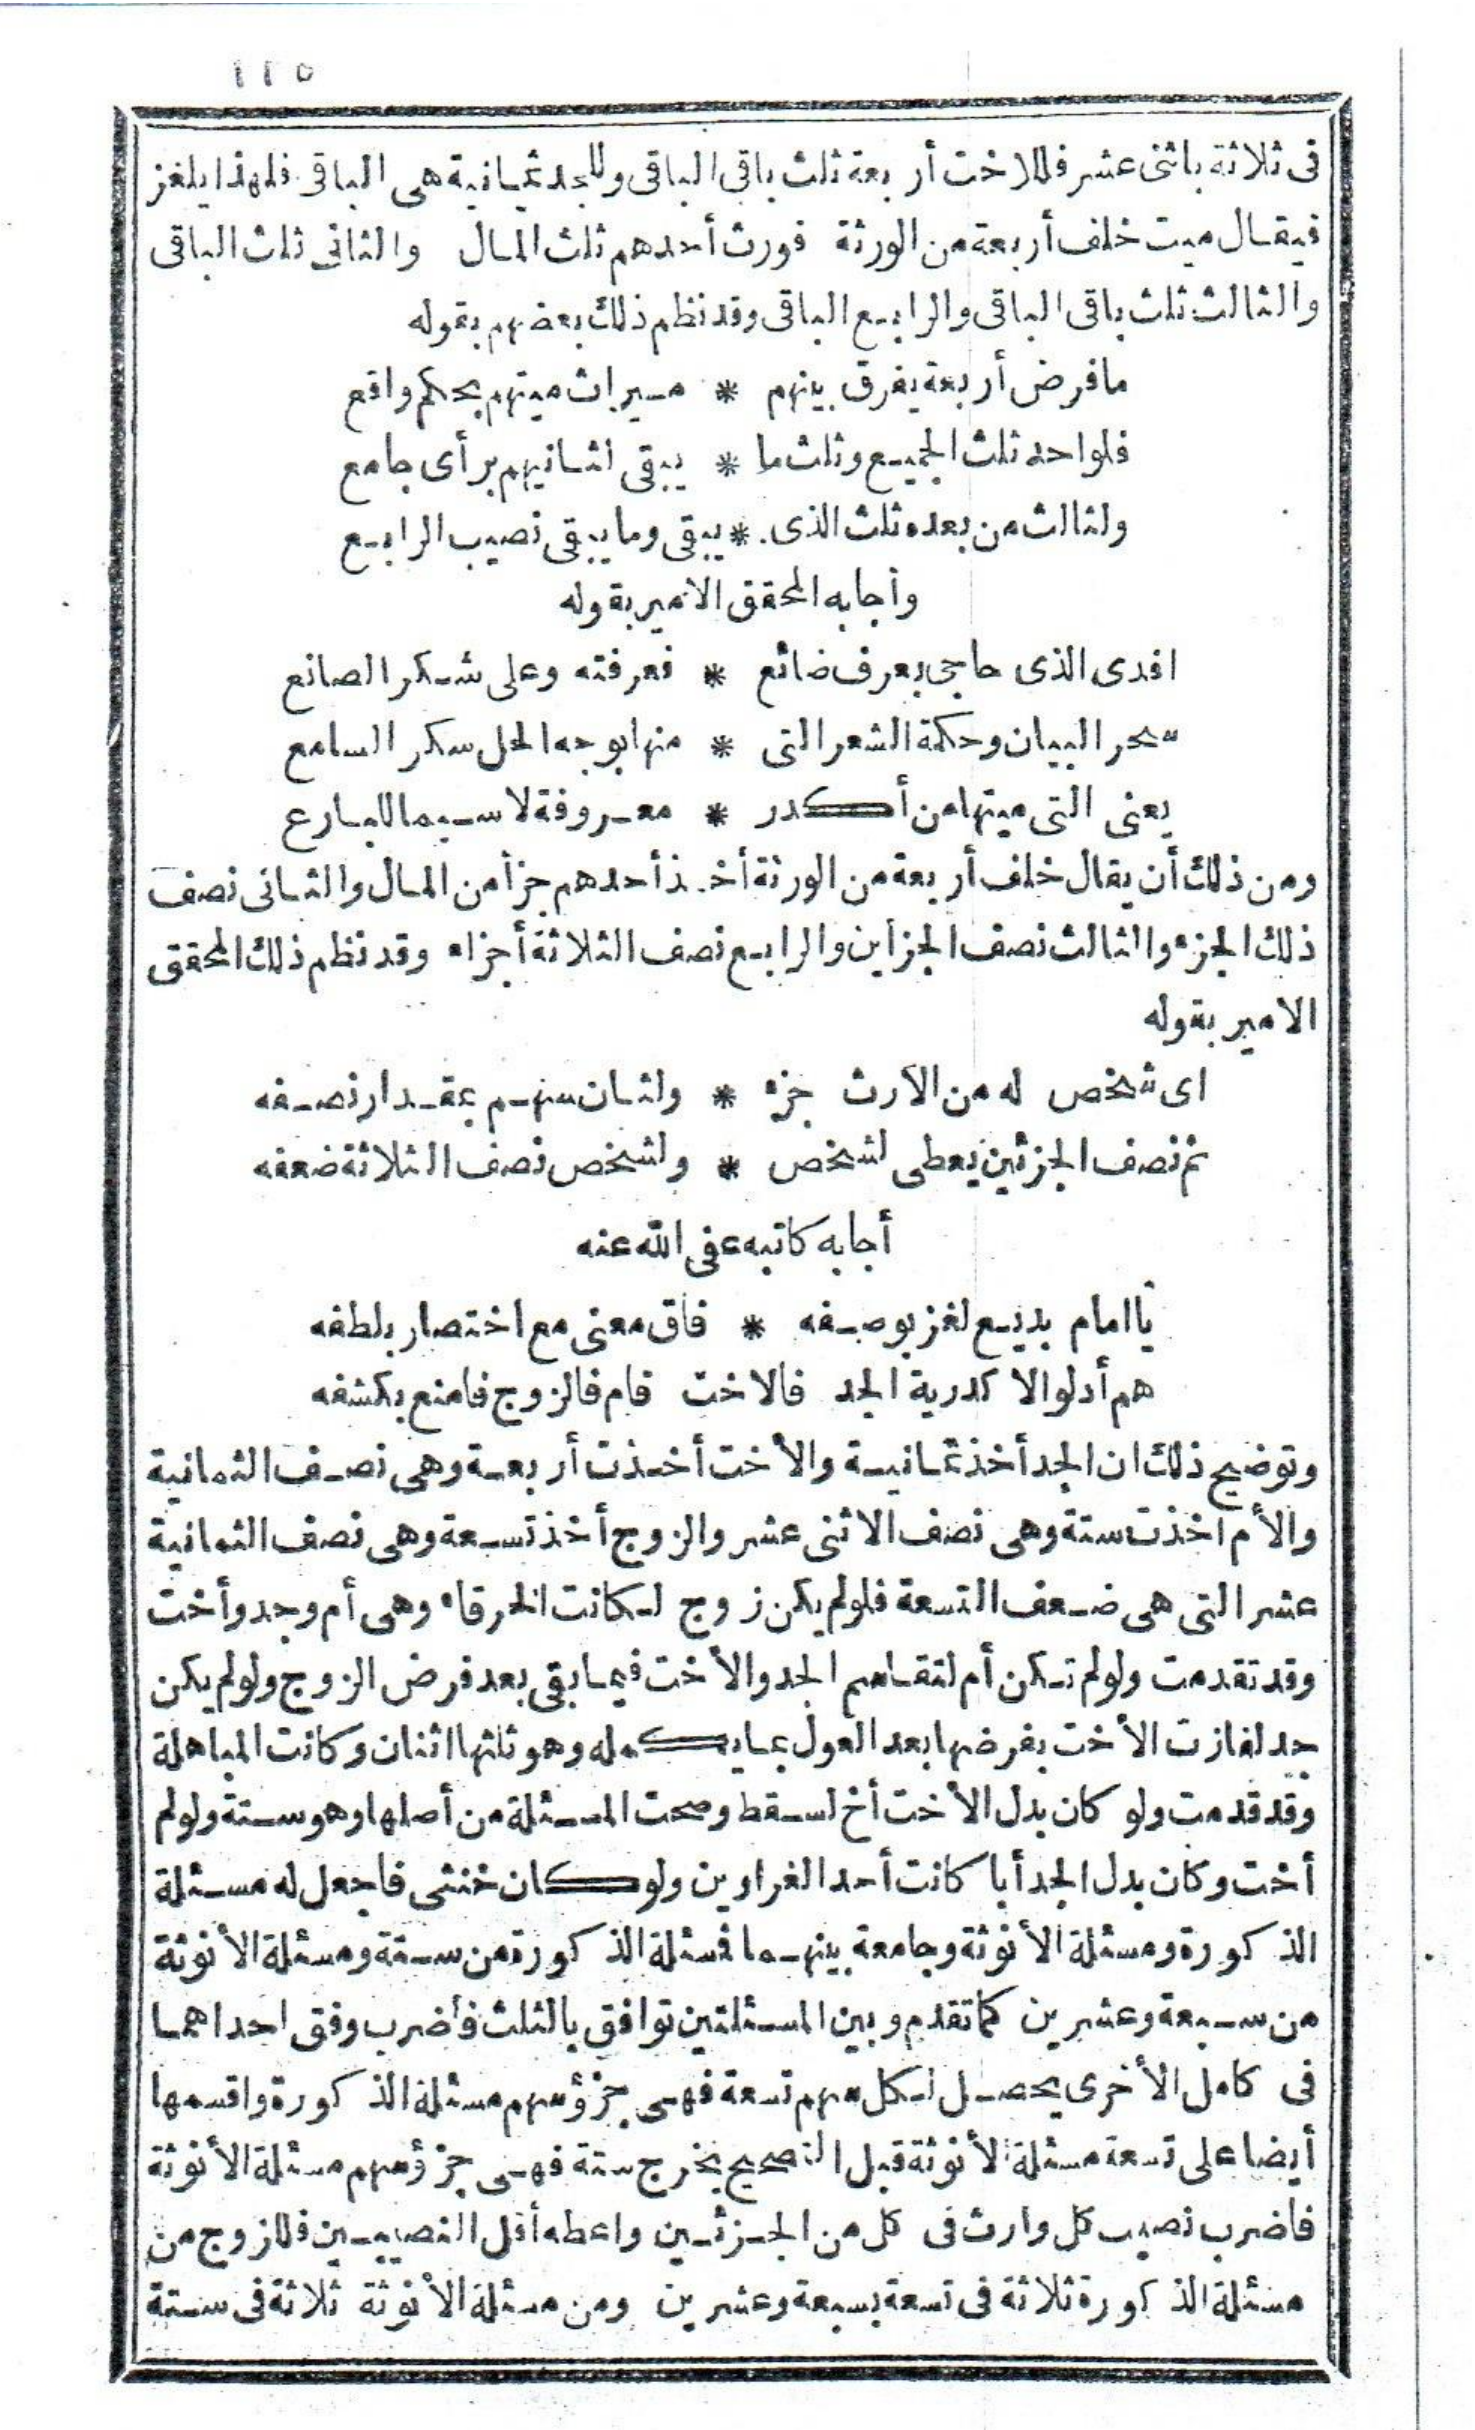 ١١٥
فى ثلاثة باثنى عشر فللاخت أربعة ثلث باقى الباقى وللجد ثمانية هى الباقى فلهذا يلغز
فيقال ميت خلف أربعة من الورثة فورث أحدهم ثلث المال والثانى ثلث الباقى
والثالث ثلث باقى الباقى والرابع الباقى وقد نظم ذلك بعضهم بقوله
مافرض أربعة يفرق بينهم * ميراث ميتهم بحكم واقع
فلواحد ثلث الجميع وثلث ما * يبقى لثانيهم برأى جامع
ولثالث من بعده ثلث الذى * يبقى وما يبقى نصيب الرابع
وأجابه المحقق الامير بقوله
افدى الذى حاجى بعرف ضائع * فعرفته وعلى شكر الصانع
سحر البيان وحكمة الشعر التى * منها بوجه الحل سكر السامع
يعنى التى ميتها من أكدر * معروفة لاسيما للبارع
ومن ذلك أن يقال خلف أربعة من الورثة أخذ أحدهم جزأ من المال والثانى نصف
ذلك الجزء والثالث نصف الجزأين والرابع نصف الثلاثة أجزاء وقد نظم ذلك المحقق
الامير بقوله
اى شخص له من الارث جزء * ولثان منهم بمقدار نصفه
ثم نصف الجزئين يعطى لشخص * ولشخص نصف الثلاثة ضعفه
أجابه كاتبه عفى الله عنه
يا امام بديع لغز بوصفه * فاق معنى مع اختصار بلطفه
هم أدلوا الاكدرية الجد فالاخت فام فالزوج فامنع بكشفه
وتوضيح ذلك ان الجد أخذ ثمانية والأخت أخذت أربعة وهى نصف الثمانية
والأم اخذت ستة وهى نصف الاثنى عشر والزوج أخذ تسعة وهى نصف الثمانية
عشر التى هى ضعف التسعة فلولم يكن زوج لكانت الخرقاء وهى أم وجد وأخت
وقد تقدمت ولولم تكن أم لتقاسم الجد والأخت فيما بقى بعد فرض الزوج ولولم يكن
جد لفازت الأخت بفرضها بعد العول بما يكمله وهو ثلثها اثنان وكانت المباهلة
وقد قدمت ولو كان بدل الأخت أخ لسقط وصحت المسئلة من أصلها وهو ستة ولولم
أخت وكان بدل الجد أبا كانت أحد الغراوين ولو كان خنثى فاجعل له مسئلة
الذكورة ومسئلة الأنوثة وجامعة بينهما فمسئلة الذكورة من ستة ومسئلة الأنوثة
من سبعة وعشرين كما تقدم وبين المسئلتين توافق بالثلث فأضرب وفق احداهما
فى كامل الأخرى يحصل لكل منهم تسعة فهى جزؤ سهم مسئلة الذكورة واقسمها
أيضا على تسعة مسئلة الأنوثة قبل التصحيح يخرج ستة فهى جزؤ سهم مسئلة الأنوثة
فاضرب نصيب كل وارث فى كل من الجزئين واعطه أقل النصيبين فللزوج من
مسئلة الذكورة ثلاثة فى تسعة بسبعة وعشرين ومن مسئلة الأنوثة ثلاثة فى ستة